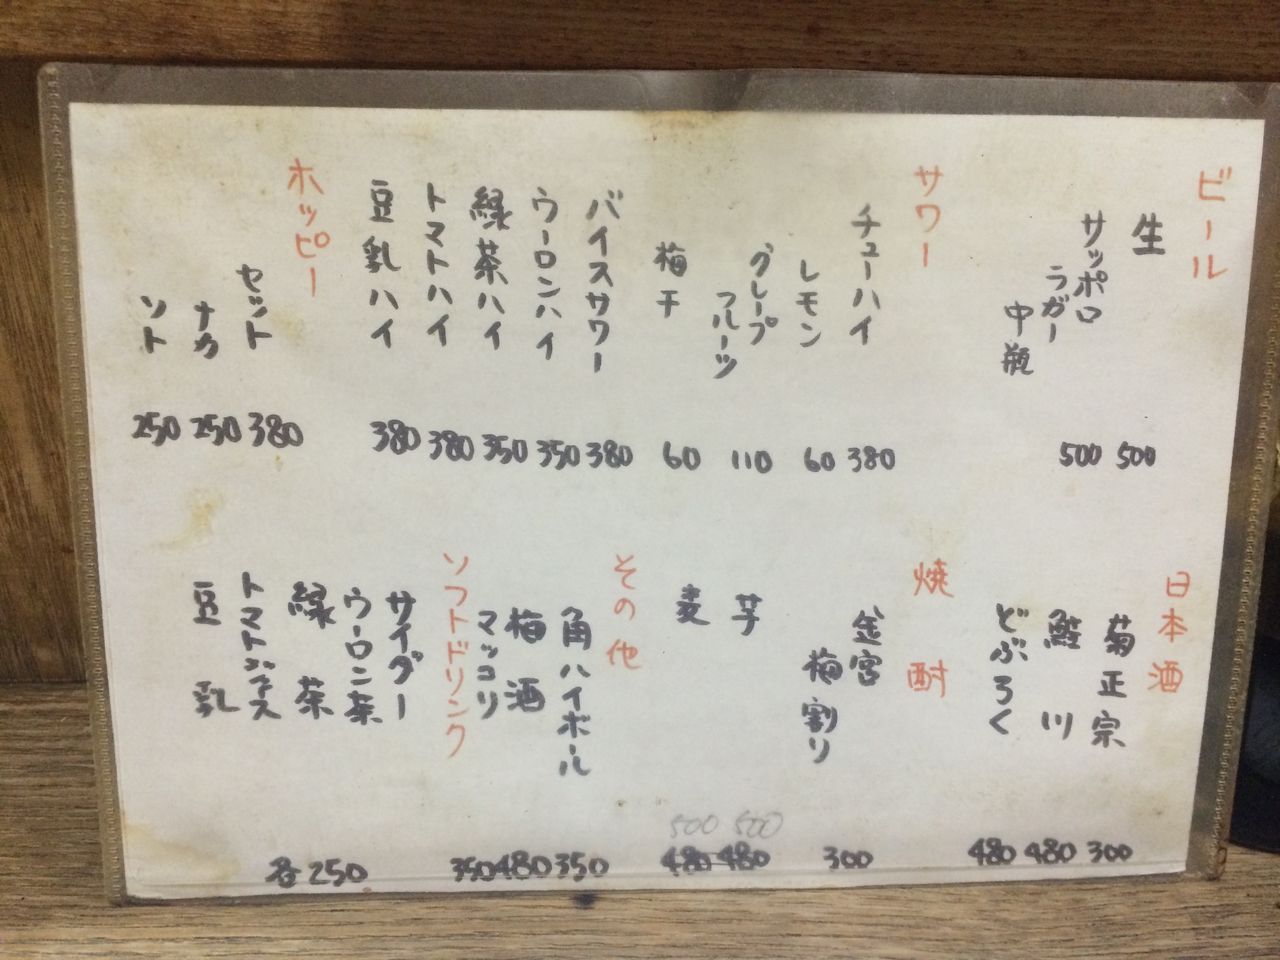 ビール
生 500
サッポロ
ラガー
中瓶 500
サワー
チューハイ 380
レモン 60
グレープ
フルーツ 110
梅干 60
バイスサワー 380
ウーロンハイ 350
緑茶ハイ 350
トマトハイ 380
豆乳ハイ 380
ホッピー
セット 380
ナカ 250
ソト 250
日本酒
菊正宗 300
鮭川 480
どぶろく 480
焼酎
金宮
梅割り 300
芋 480 500
麦 480 500
その他
角ハイボール 350
梅酒 480
マッコリ 350
ソフトドリンク
サイダー
ウーロン茶
緑茶
トマトジュース
豆乳
各250